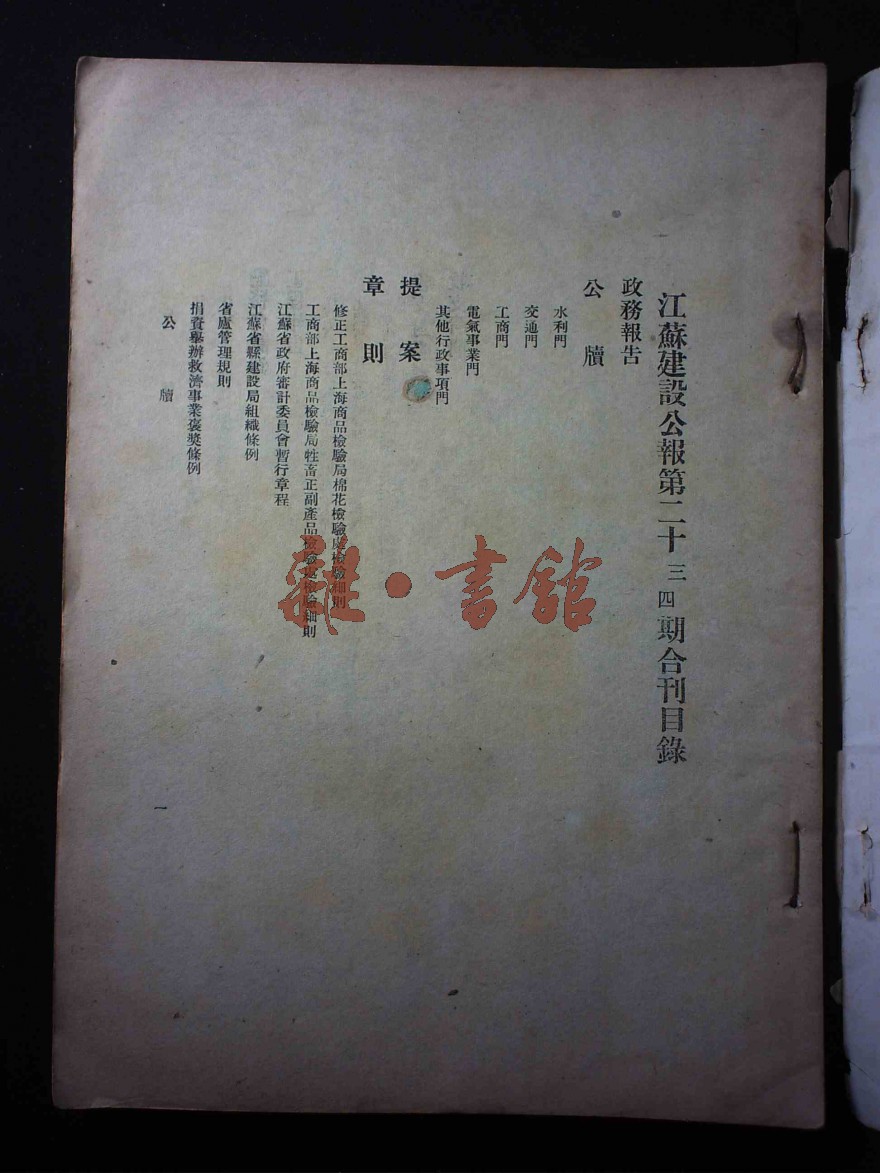 江蘇建設公報第二十三四期合刊目錄
政務報告
公牘
水利門
交通門
工商門
電氣事業門
其他行政事項門
提案
章則
修正工商部上海商品檢驗局棉花檢驗處檢驗細則
工商部上海商品檢驗局牲畜正副產品檢驗處檢驗細則
江蘇省政府審計委員會暫行章程
江蘇省縣建設局組織條例
省廬管理規則
捐資舉辦救濟事業褒獎條例
公牘
一
雜·書館